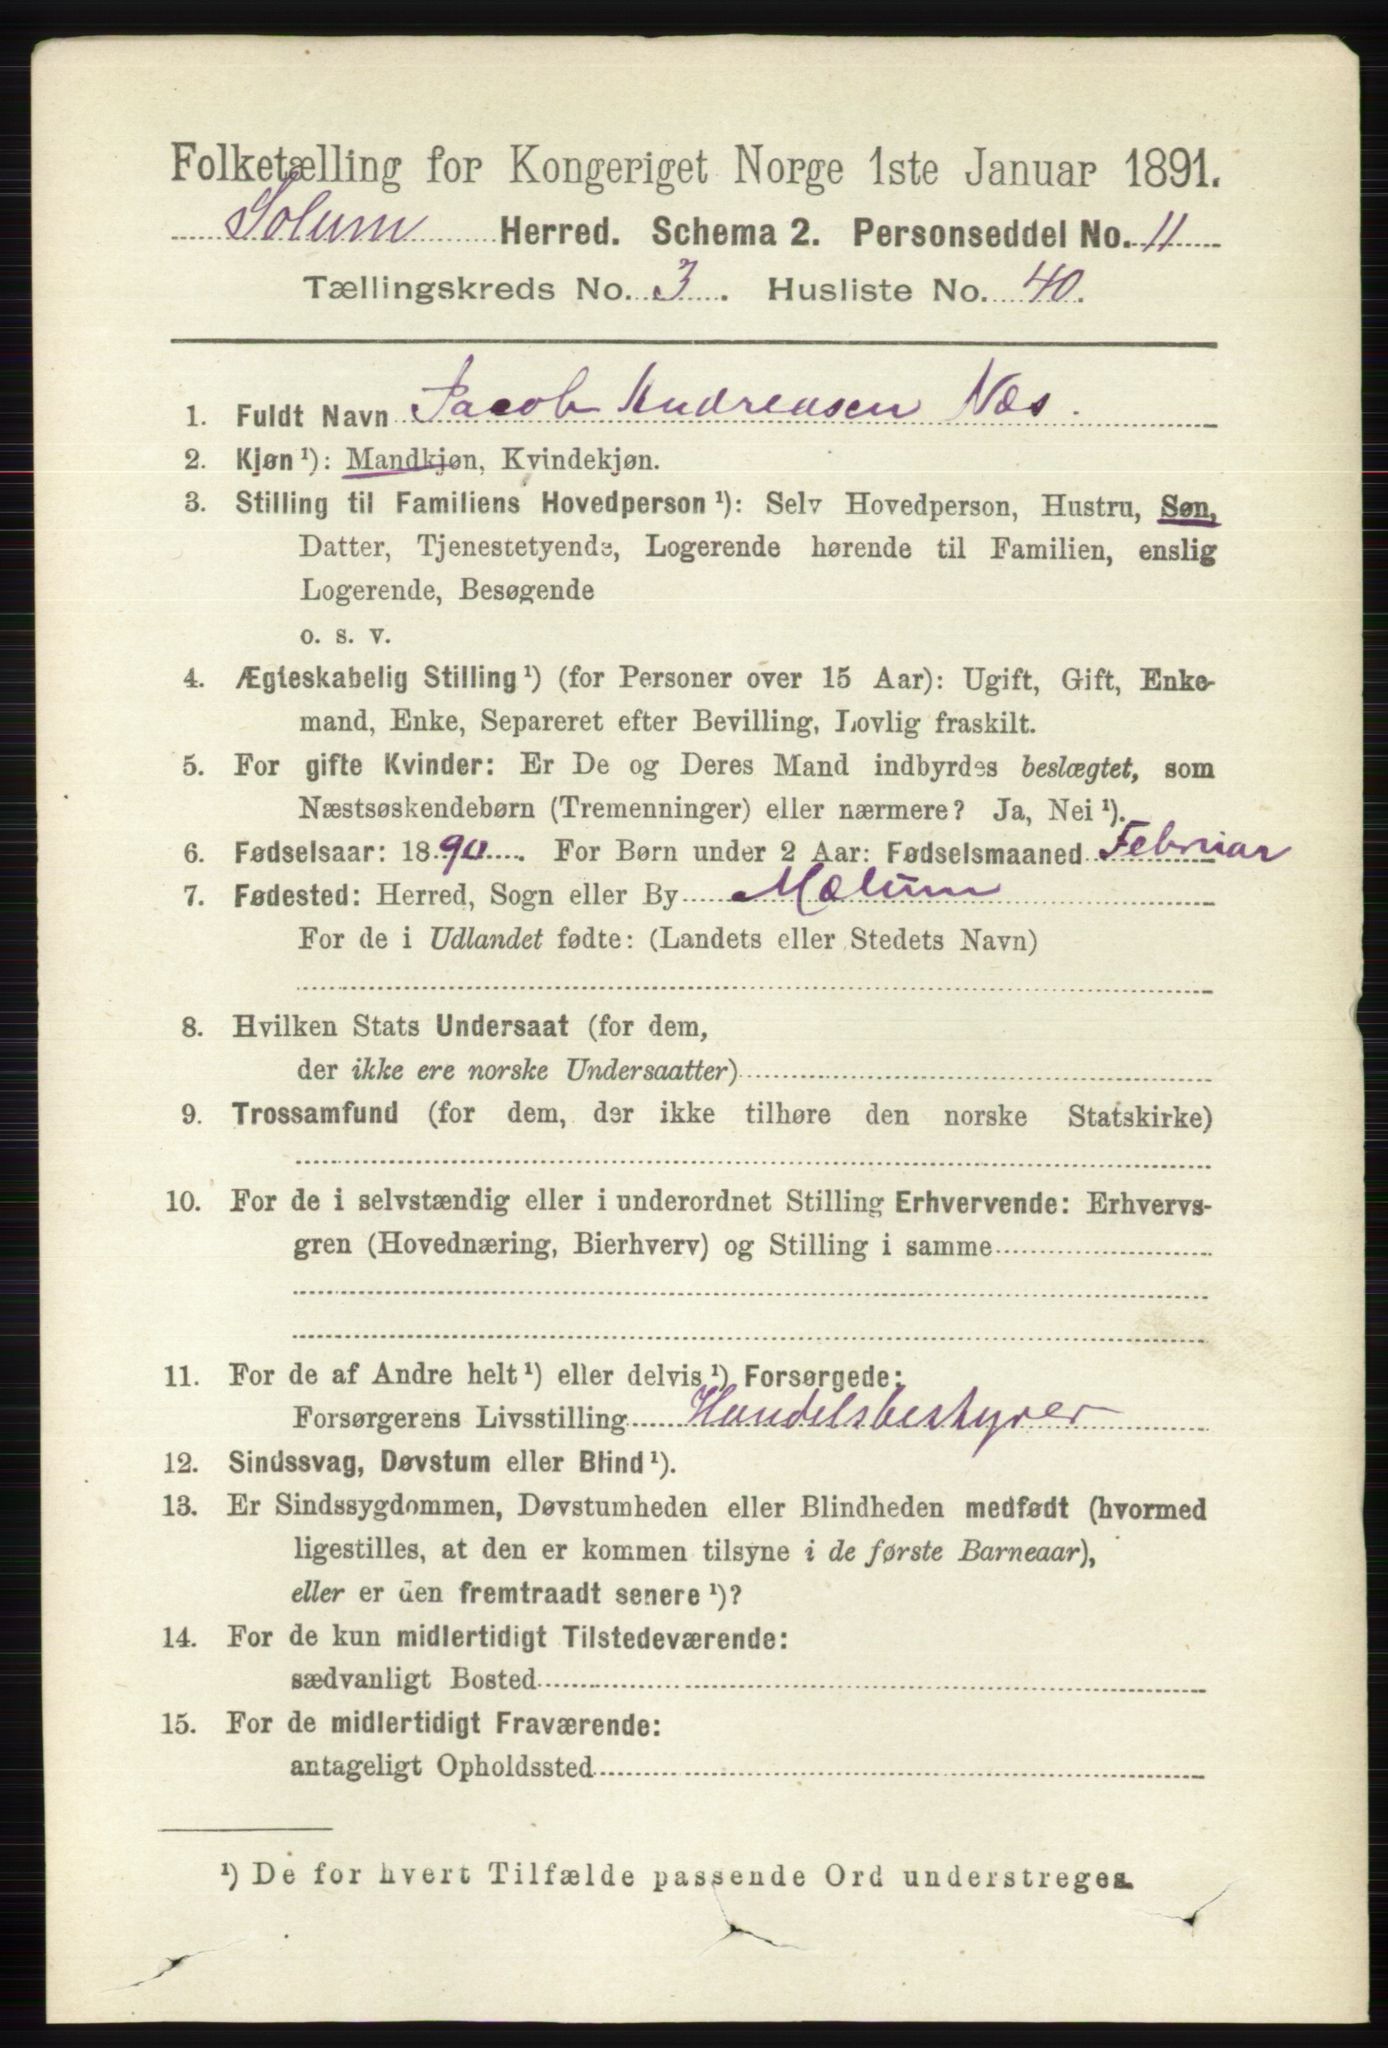 Folketælling for Kongeriget Norge 1ste Januar 1891.
Solum Herred. Schema 2. Personseddel No. 11
Tællingskreds No. 3. Husliste No. 40.
1. Fuldt Navn Jacob Andreasen Næs.
2. Kjøn¹): Mandkjøn, Kvindekjøn.
3. Stilling til Familiens Hovedperson¹): Selv Hovedperson, Hustru, Søn,
Datter, Tjenestetyende, Logerende hørende til Familien, enslig
Logerende, Besøgende
o. s. v.
4. Ægteskabelig Stilling¹) (for Personer over 15 Aar): Ugift, Gift, Enke-
mand, Enke, Separeret efter Bevilling, Lovlig fraskilt.
5. For gifte Kvinder: Er De og Deres Mand indbyrdes beslægtet, som
Næstsøskendebørn (Tremenninger) eller nærmere? Ja, Nei¹).
6. Fødselsaar: 1890. For Børn under 2 Aar: Fødselsmaaned Februar
7. Fødested: Herred, Sogn eller By Mælum
For de i Udlandet fødte: (Landets eller Stedets Navn)
8. Hvilken Stats Undersaat (for dem,
der ikke ere norske Undersaatter)
9. Trossamfund (for dem, der ikke tilhøre den norske Statskirke)
10. For de i selvstændig eller i underordnet Stilling Erhvervende: Erhvervs-
gren (Hovednæring, Bierhverv) og Stilling i samme
11. For de af Andre helt¹) eller delvis¹) Forsørgede:
Forsørgerens Livsstilling Handelsbestyrer
12. Sindssvag, Døvstum eller Blind¹).
13. Er Sindssygdommen, Døvstumheden eller Blindheden medfødt (hvormed
ligestilles, at den er kommen tilsyne i de første Barneaar),
eller er den fremtraadt senere¹)?
14. For de kun midlertidigt Tilstedeværende:
sædvanligt Bosted
15. For de midlertidigt Fraværende:
antageligt Opholdssted
¹) De for hvert Tilfælde passende Ord understreges.